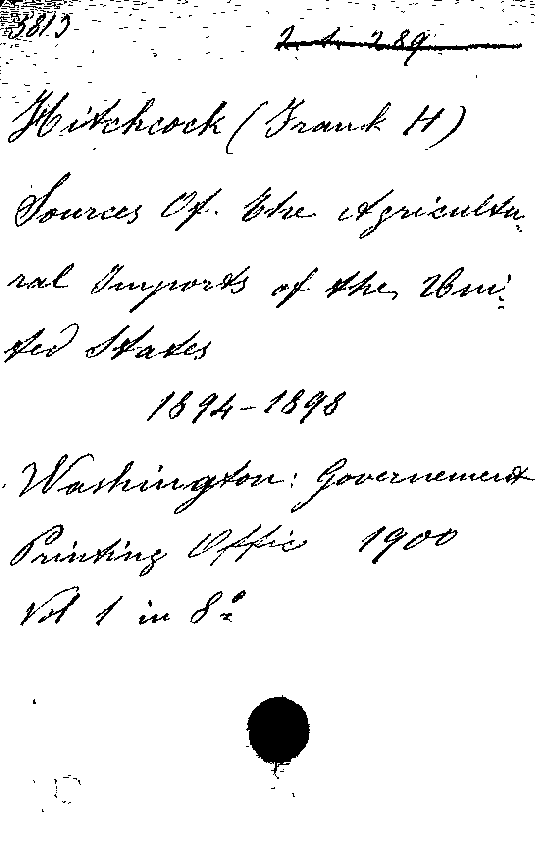 5813
2. 1. 289
Hitchcock (Frank H)
Sources Of. the Agricultu-
ral Imports of the Uni-
ted States
1894-1898
Washington: Governement
Printing Offic 1900
Vol 1 in 8º